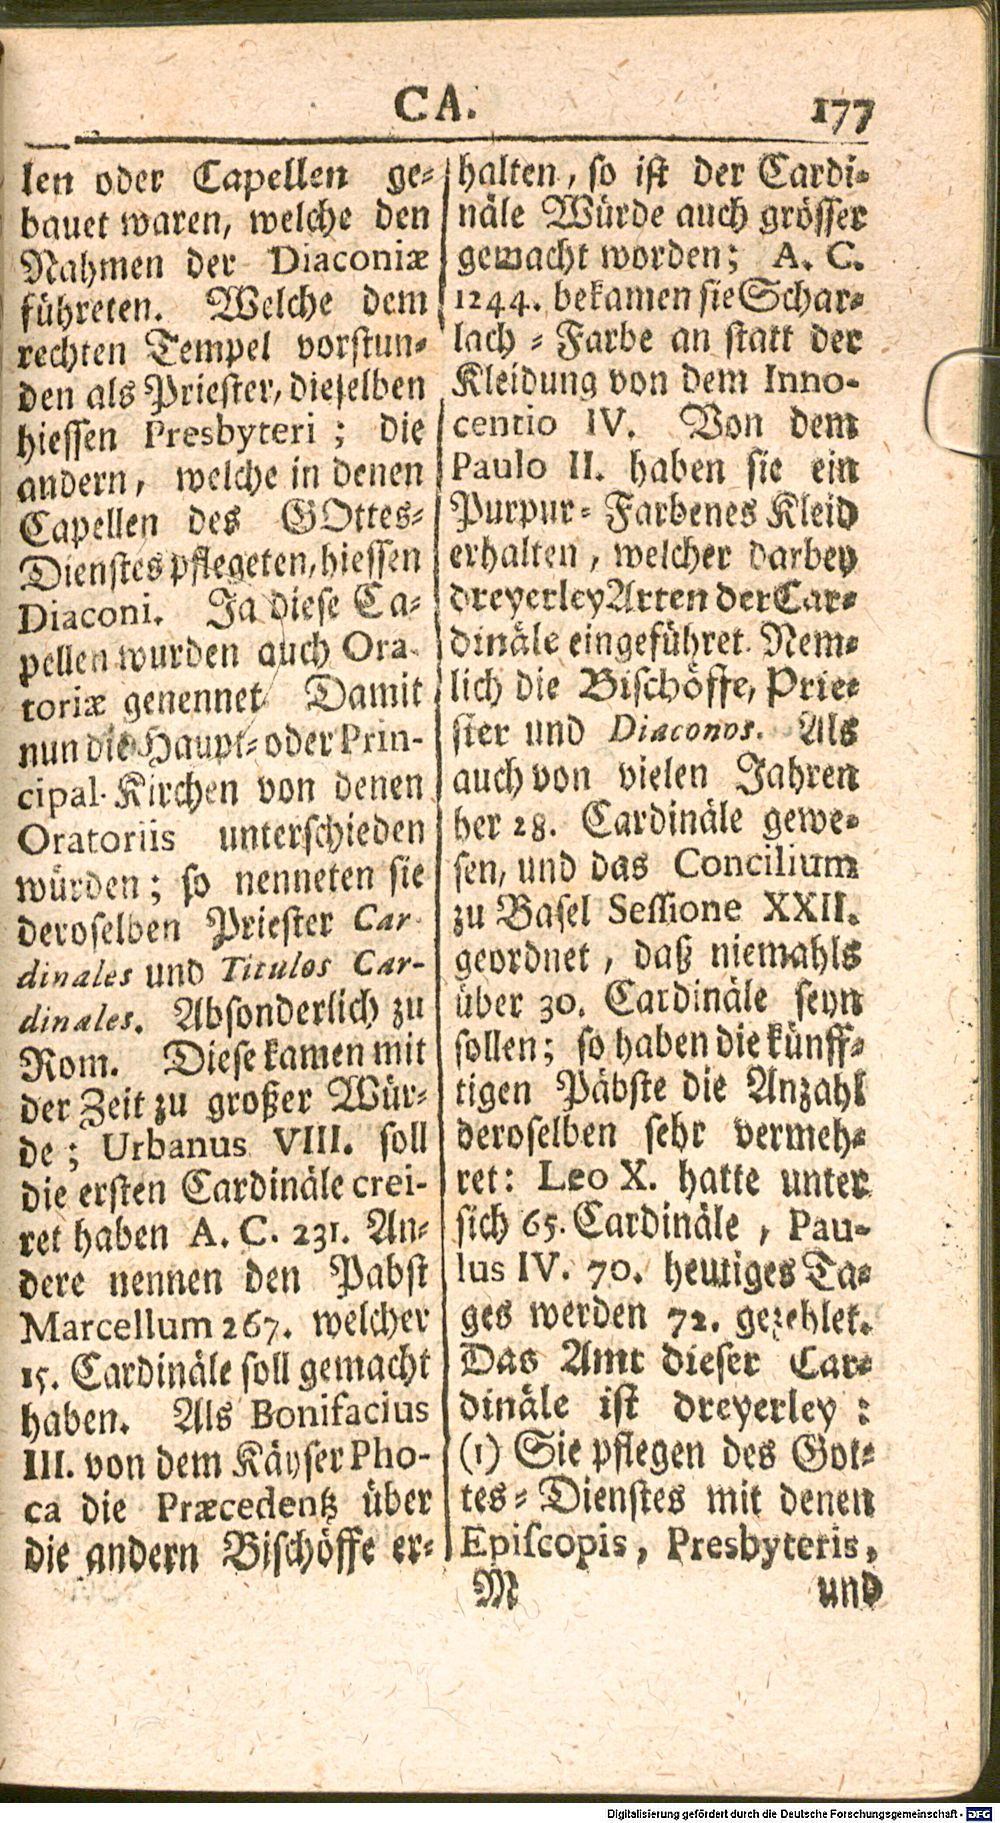 CA. 177
len oder Capellen ge-
bauet waren, welche den
Nahmen der Diaconiæ
führeten. Welche dem
rechten Tempel vorstun-
den als Priester, dieselben
hiessen Presbyteri ; die
andern, welche in denen
Capellen des GOttes-
Dienstes pflegeten, hiessen
Diaconi. Ja diese Ca-
pellen wurden auch Ora-
toriæ genennet. Damit
nun die Haupt- oder Prin-
cipal-Kirchen von denen
Oratoriis unterschieden
würden ; so nenneten sie
deroselben Priester Car-
dinales und Titulos Car-
dinales. Absonderlich zu
Rom. Diese kamen mit
der Zeit zu großer Wür-
de ; Urbanus VIII. soll
die ersten Cardinäle crei-
ret haben A. C. 231. An-
dere nennen den Pabst
Marcellum 267. welcher
15. Cardinäle soll gemacht
haben. Als Bonifacius
III. von dem Käyser Pho-
ca die Præcedentz über
die andern Bischöffe er-
halten, so ist der Cardi-
näle Würde auch grösser
gemacht worden ; A. C.
1244. bekamen sie Schar-
lach - Farbe an statt der
Kleidung von dem Inno-
centio IV. Von dem
Paulo II. haben sie ein
Purpur - Farbenes Kleid
erhalten, welcher darbey
dreyerley Arten der Car-
dinäle eingeführet. Nem-
lich die Bischöffe, Prie-
ster und Diaconos. Als
auch von vielen Jahren
her 28. Cardinäle gewe-
sen, und das Concilium
zu Basel Sessione XXII.
geordnet, daß niemahls
über 30. Cardinäle seyn
sollen ; so haben die künff-
tigen Päbste die Anzahl
deroselben sehr vermeh-
ret: Leo X. hatte unter
sich 65. Cardinäle , Pau-
lus IV. 70. heutiges Ta-
ges werden 72. gezehlet.
Das Amt dieser Car-
dinäle ist dreyerley :
(1) Sie pflegen des Got-
tes - Dienstes mit denen
Episcopis, Presbyteris,
M und
Digitalisierung gefördert durch die Deutsche Forschungsgemeinschaft - DFG